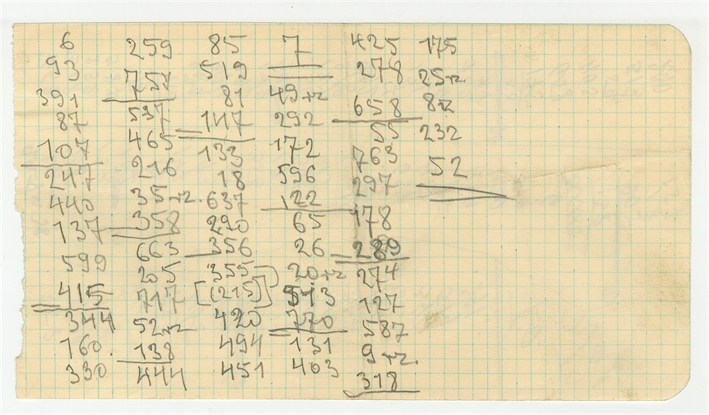 6
93
391
87
107
247
440
137
599
415
344
160.
330
259
751
537
465
216
35+z.
358
663
205
717
52+z
138
444
85
519
81
147
133
18
637
290
356
355
[(215)]
420
494
451
7
49+z
292
172
596
122
65
26
20+z
513
770
131
403
425
278
658
55
763
297
178
289
274
127
587
9+z.
318
175
25+z
8+z
232
52